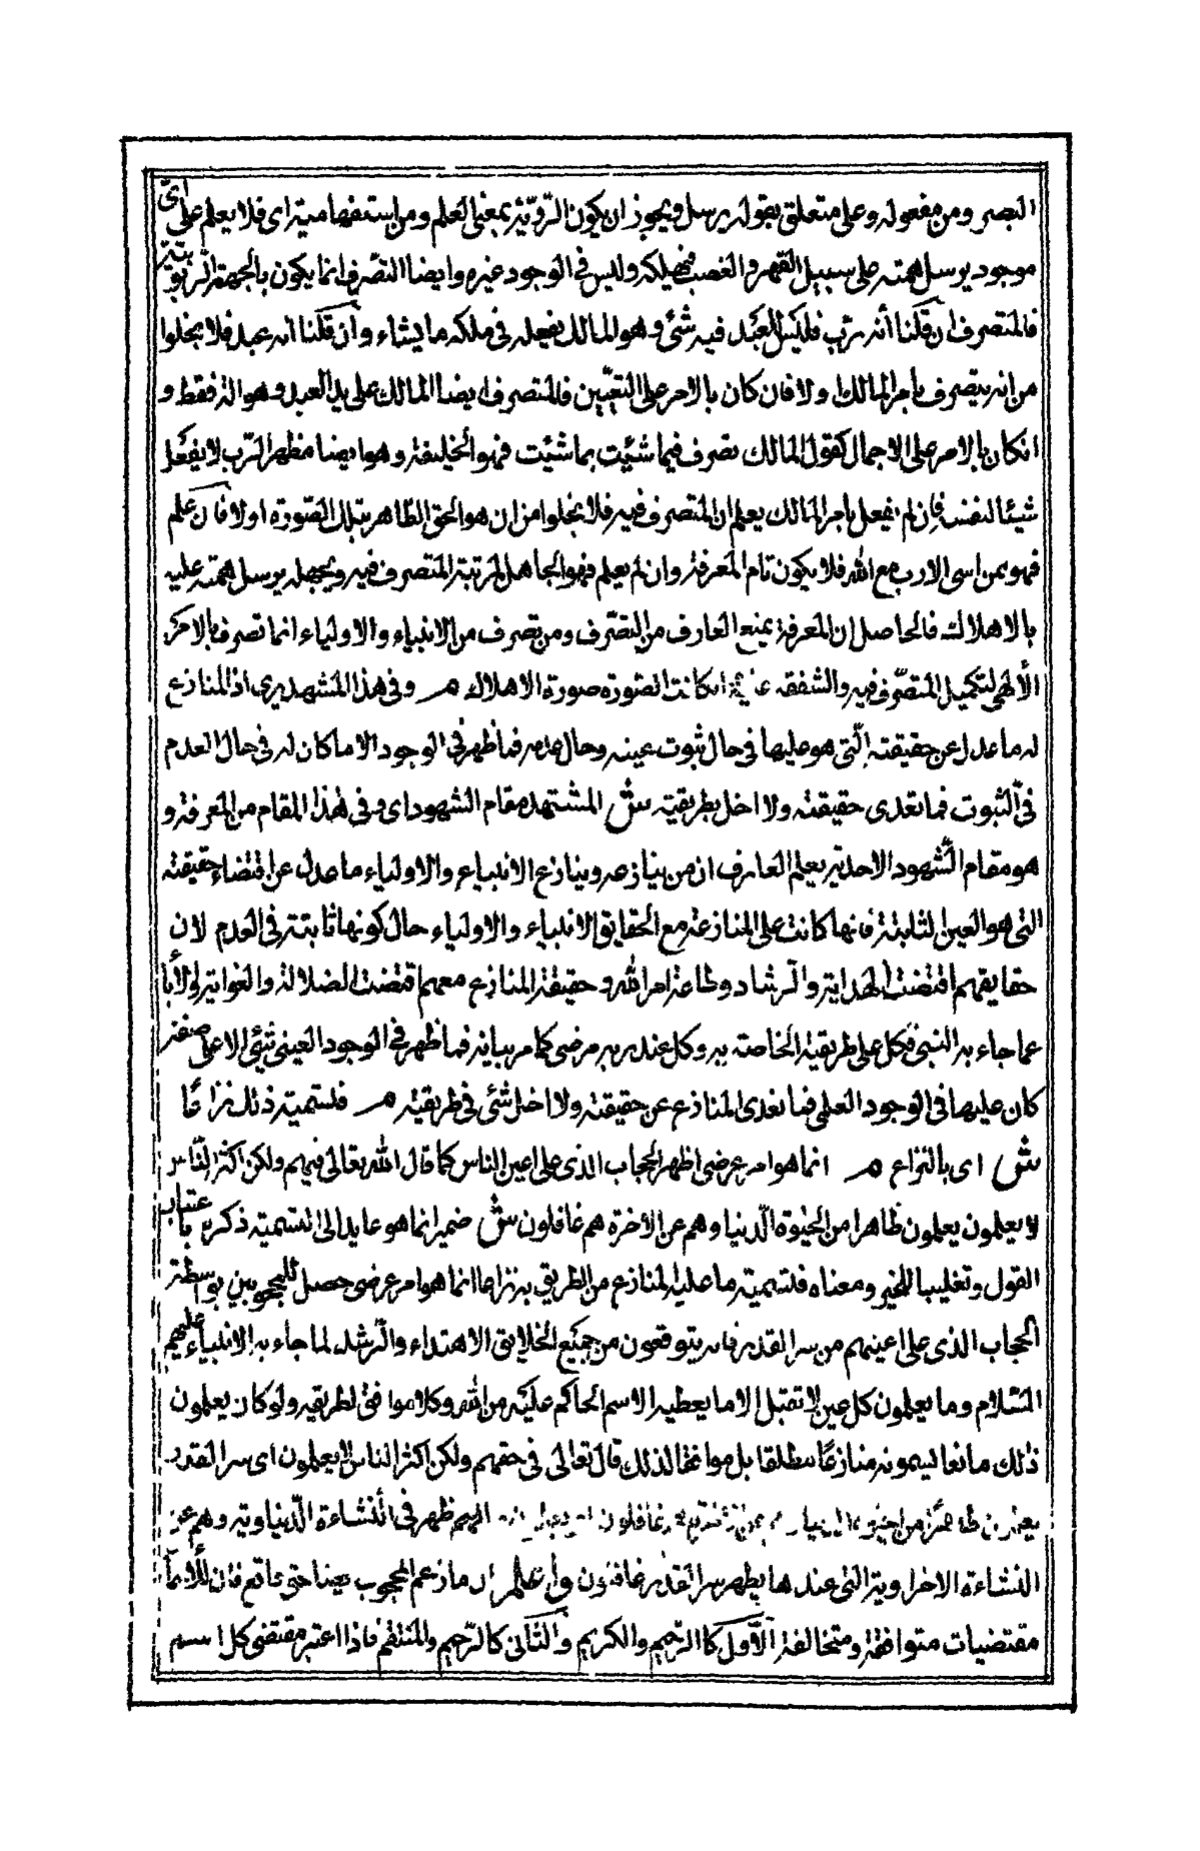 البصر ومن مفعوله وعلى متعلق بقوله يرسل ويجوز ان يكون الرؤية بمعنى العلم ومن استفهامية اى فلا يعلم على اىّ
موجود يرسل همته على سبيل القهر والغضب فيهلكه وليس فى الوجود غيره وايضا التصرف انما يكون بالجهة الربوبية
فالمتصرف ان قلنا أنه ربّ فليس للعبد فيه شئ وهو المالك يفعل فى ملكه ما يشاء وان قلنا انه عبد فلا يخلوا
من انه يتصرف بامر المالك اولا فان كان بالامر على التعيين فالمتصرف ايضا المالك على يد العبد وهو آلة فقط و
انكان بالامر على الاجمال كقول المالك تصرف فيما شئت بما شئت فهو الخليفة وهو ايضا مظهر الرب لا يفعل
شيئا لنفسه فان لم يفعل بامر المالك يعلم ان المتصرف فيه فلا يخلوا من ان هو الحق الظاهر بتلك الصّورة اولا فان علم
فهو بمن اسى الادب مع الله فلا يكون تام المعرفة وان لم يعلم فهو الجاهل لمرتبة المتصرف فيه وبجهله يرسل همته عليه
بالاهلاك فالحاصل ان المعرفة يمنع العارف من التصّرف ومن تصرف من الانبياء والاولياء انما تصرف بالامر
الألهى لتكميل المتصّرف فيه والشفقة انكانت الصّورة صورة الاهلاك م وفى هذا المشهد يرى ان المنازع
له ما عدل عن حقيقته الّتى هو عليها فى حال ثبوت عينه وحال عدمه فما ظهر فى الوجود الا ما كان له فى حال العدم
فى الّثبوت فما تعدى حقيقته ولا اخل بطريقته ش المشتهد مقام الشهود اى وفى هذا المقام من المعرفة و
هو مقام الشّهود الاحدية يعلم العارف ان من ينازعه وينازع الانبياء والاولياء ما عدل عن اقتضاء حقيقته
التى هو العين الثابتة فانها كانت على المنازعة مع الحقايق الانبياء والاولياء حال كونها ثابتة فى العدم لان
حقايقهم اقتضت الهداية والّرشاد وطاعة امر الله وحقيقة المنازع معهم اقتضت الضلالة والغواية والأبا
عما جاء به النبى فكل على طريقيته الخاصته به وكل عند ربه مرضى كما مر بيانه فما ظهر فى الوجود العينى شئى الا على صفة
كان عليها فى الوجود العلمى فما تعدى المنازع عن حقيقته ولا اخل شئى فى طريقته م فلتسمية ذلك نزاعًا
ش اى بالنزاع م انما هو امر عرضى اظهر الحجاب الذى على اعين الناس كما قال الله تعالى فيهم ولكن اكثر النّاس
لا يعلمون يعلمون ظاهرا من الحيٰوة الّدنيا وهم عن الاخرة هم غافلون ش ضمير انما هو عايد الى التسمية ذكره باعتبار
القول وتغليبا للخبر ومعناه فلتسمية ما عليه المنازع من الطريق به نزاعا انما هو امر عرضى حصل للمحجوبين بواسطة
الحجاب الذى على اعينهم من سر القدر فانه يتوقعون من جميع الخلايق الاهتداء والّرشد لما جاء به الانبياء عليهم
السّلام وما يعلمون كل عين لا تقبل الا ما يعطيه الاسم الحاكم عليه من الله وكلا موافق لطريقه ولو كان يعلمون
ذلك ما نعا ليسمونه منازعًا مطلقا بل موافقا لذلك قال تعالى فى حقهم ولكن اكثر الناس لا يعلمون اى سر القدر
من الحيٰوة غافلون انهم ظهر فى النشاءة الّدنياوية وهم عن
النشاءة الاخراوية التى عندها يظهر سر القدر غافلون واعلم ان ما زعم المحجوب ايضا حق واقع فان للأسمآ
مقتضيات متوافقة ومتخالفة الأول كالرّحيم والكريم والثانى كالرّحيم والمنتقم فاذا اعتبر مقتضى كل اسم